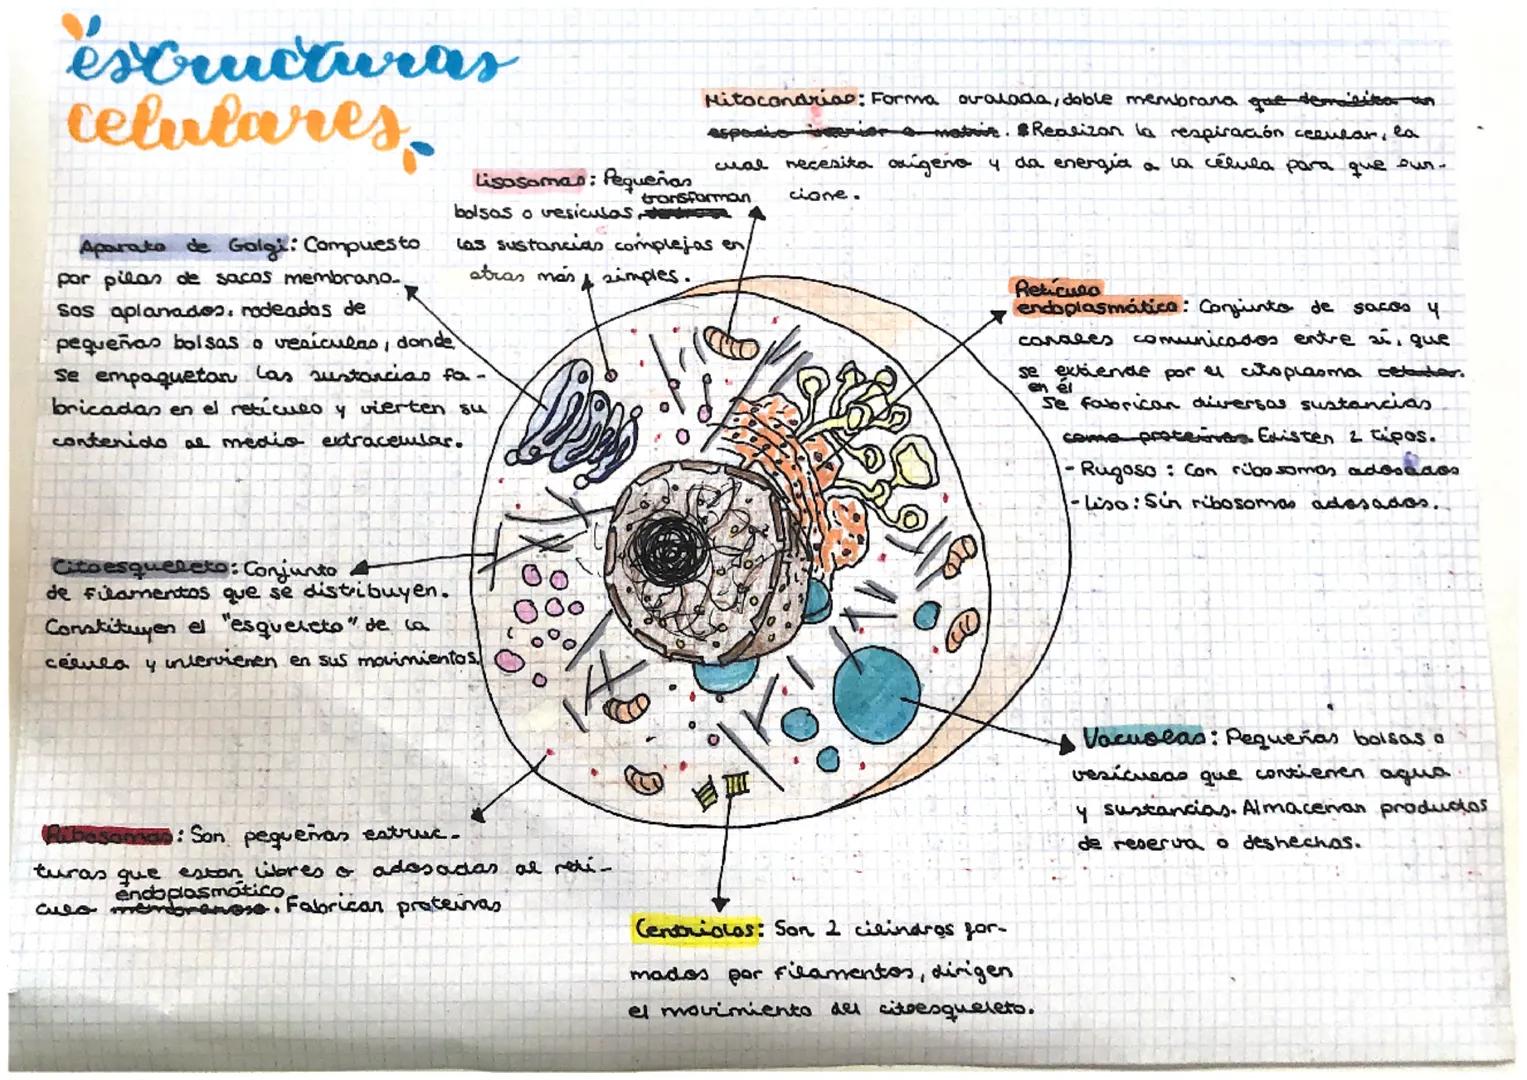 estructuras
celulares
Mitocondrias: Forma ovalada, doble membrana que
espacio interior o matriz. Realizan la respiración celular, la
cual necesita oxígeno y da energía a la célula para que fun-
cione.
Lisosomas: Pequeñas
transforman
bolsas o vesículas,
las sustancias complejas en
otras más simples.
Aparato de Golgi: Compuesto
por pilas de sacos membrano-
sos aplanados, rodeados de
pequeñas bolsas o vesículas, donde
se empaquetan las sustancias fa-
bricadas en el retículo y vierten su
contenido al medio extracelular.
Retículo
endoplasmático: Conjunto de sacos y
canales comunicados entre sí, que
se extiende por el citoplasma celular.
en él
se fabrican diversas sustancias
como proteínas. Existen 2 tipos.
- Rugoso: Con ribosomas adosados
- Liso: Sin ribosomas adosados.
Citoesqueleto: Conjunto
de filamentos que se distribuyen.
Constituyen el "esqueleto" de la
célula y intervienen en sus movimientos.
Vacuolas: Pequeñas bolsas o
vesículas que contienen agua
y sustancias. Almacenan productos
de reserva o deshechos.
Ribosomas: Son pequeñas estruc-
turas que estan libres o adosadas al retí-
endoplasmático
culo membranoso. Fabrican proteínas
Centriolos: Son 2 cilindros for-
mados por filamentos, dirigen
el movimiento del citoesqueleto.